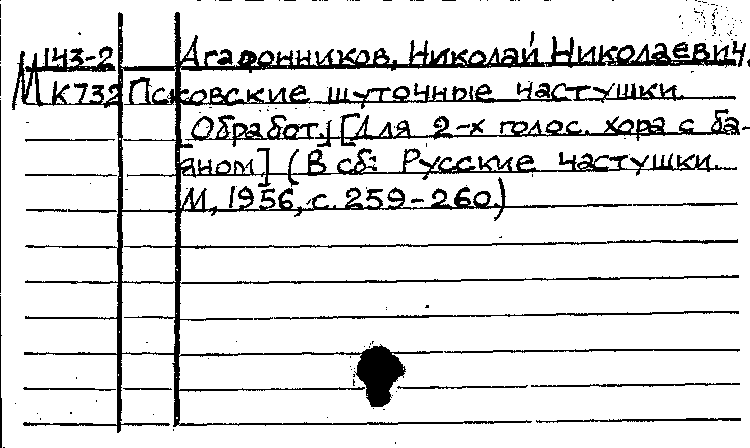 М 143-2 Агафонников, Николай Николаевич.
К732 Псковские шуточные частушки.
[Обработ.] [Для 2-х голос. хора с ба-
яном] (В сб: Русские частушки.
М, 1956, с. 259-260.)